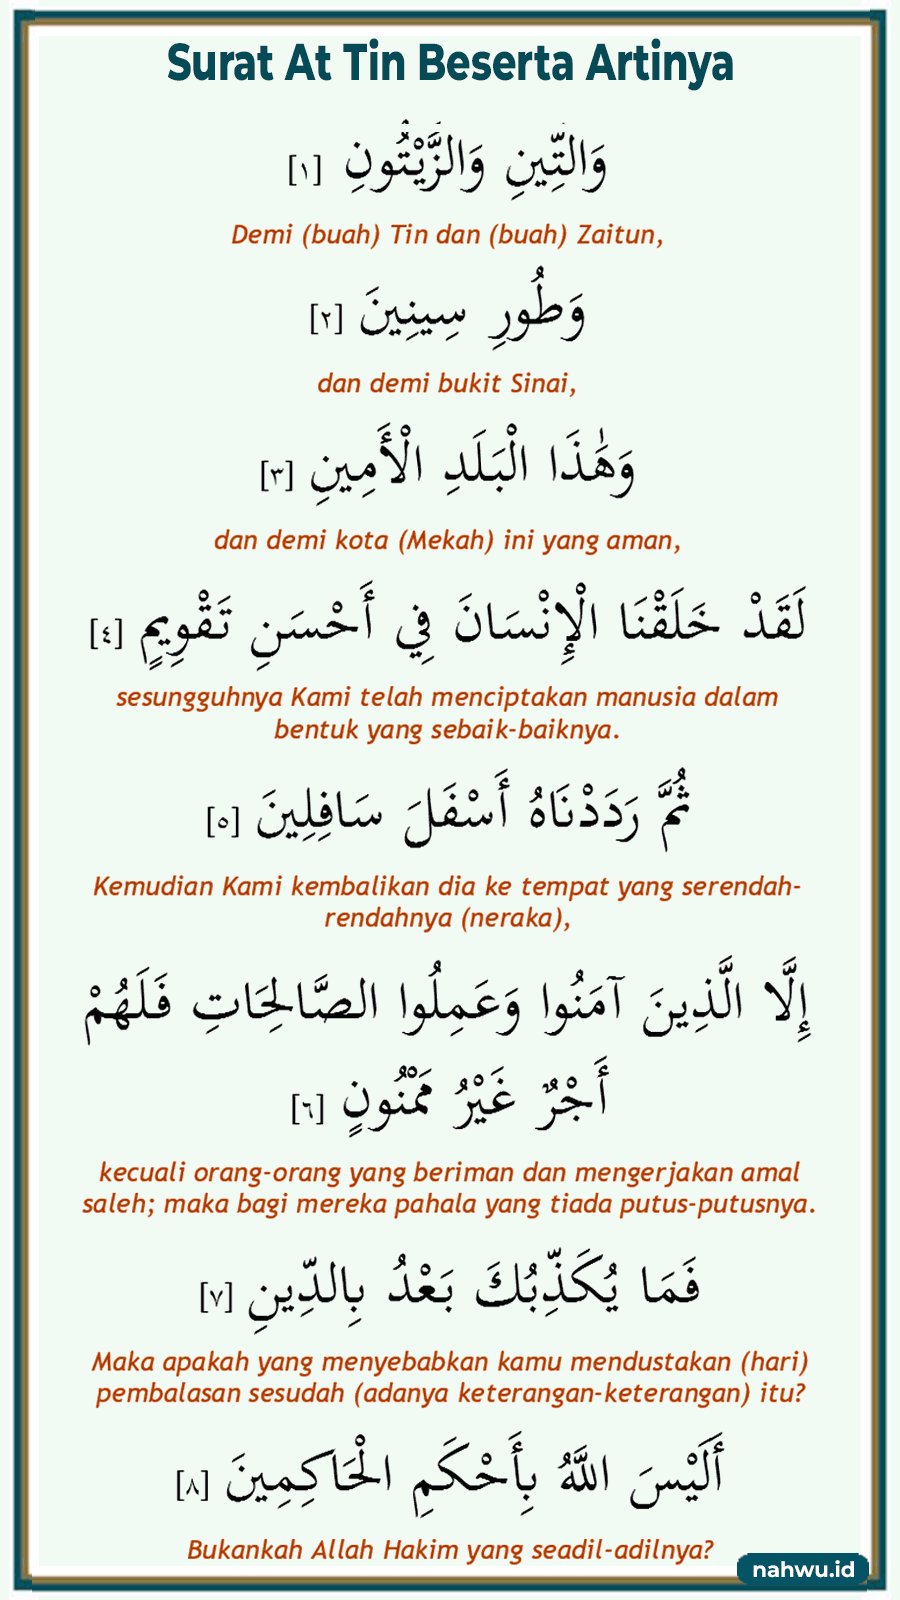 Surat At Tin Beserta Artinya
وَالتِّينِ وَالزَّيْتُونِ [١]
Demi (buah) Tin dan (buah) Zaitun,
وَطُورِ سِينِينَ [٢]
dan demi bukit Sinai,
وَهَٰذَا الْبَلَدِ الْأَمِينِ [٣]
dan demi kota (Mekah) ini yang aman,
لَقَدْ خَلَقْنَا الْإِنْسَانَ فِي أَحْسَنِ تَقْوِيمٍ [٤]
sesungguhnya Kami telah menciptakan manusia dalam
bentuk yang sebaik-baiknya.
ثُمَّ رَدَدْنَاهُ أَسْفَلَ سَافِلِينَ [٥]
Kemudian Kami kembalikan dia ke tempat yang serendah-
rendahnya (neraka),
إِلَّا الَّذِينَ آمَنُوا وَعَمِلُوا الصَّالِحَاتِ فَلَهُمْ
أَجْرٌ غَيْرُ مَمْنُونٍ [٦]
kecuali orang-orang yang beriman dan mengerjakan amal
saleh; maka bagi mereka pahala yang tiada putus-putusnya.
فَمَا يُكَذِّبُكَ بَعْدُ بِالدِّينِ [٧]
Maka apakah yang menyebabkan kamu mendustakan (hari)
pembalasan sesudah (adanya keterangan-keterangan) itu?
أَلَيْسَ اللَّهُ بِأَحْكَمِ الْحَاكِمِينَ [٨]
Bukankah Allah Hakim yang seadil-adilnya?
nahwu.id